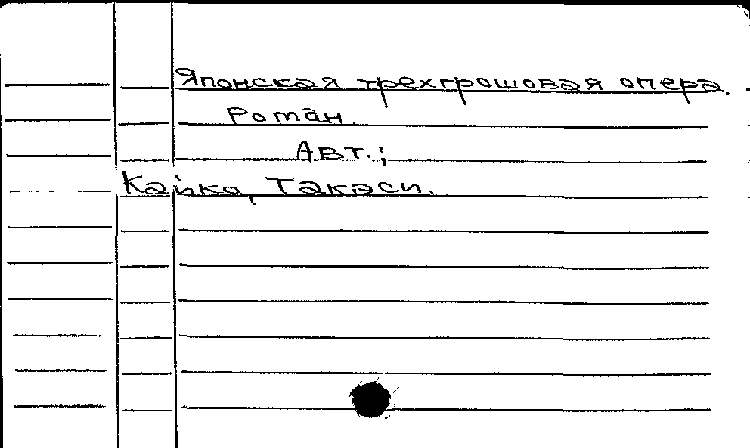 Японская трехгрошовая опера.
Роман.
Авт.:
Кайко, Такаси.